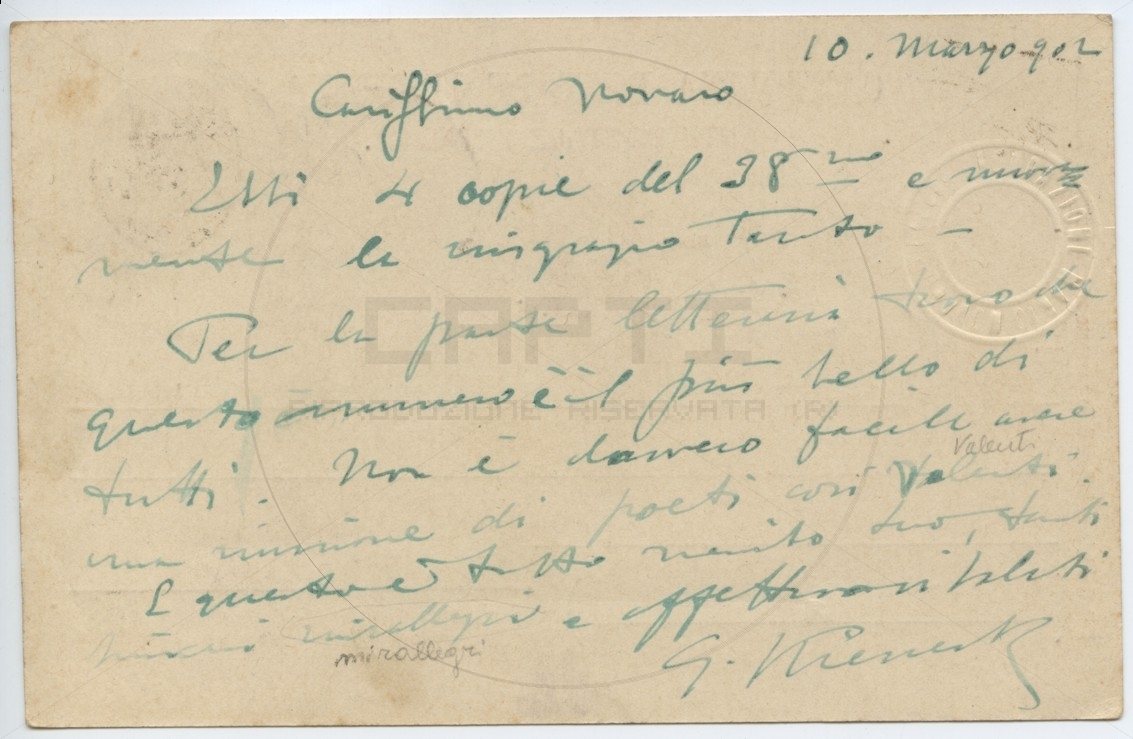 10. Marzo 902
Carissimo Novaro
Ebbi 4 copie del 38mo e nuova
mente la ringrazio tanto —
Per la parte letteraria trovo che
questo numero è il più bello di
tutti. Non è davvero facile avere
Valenti
una riunione di poeti così Valenti.
E questo è tutto merito suo, tanti
mirallegri e affettuosi saluti
mirallegri
G.
CAPTI
RIPRODUZIONE RISERVATA (R)